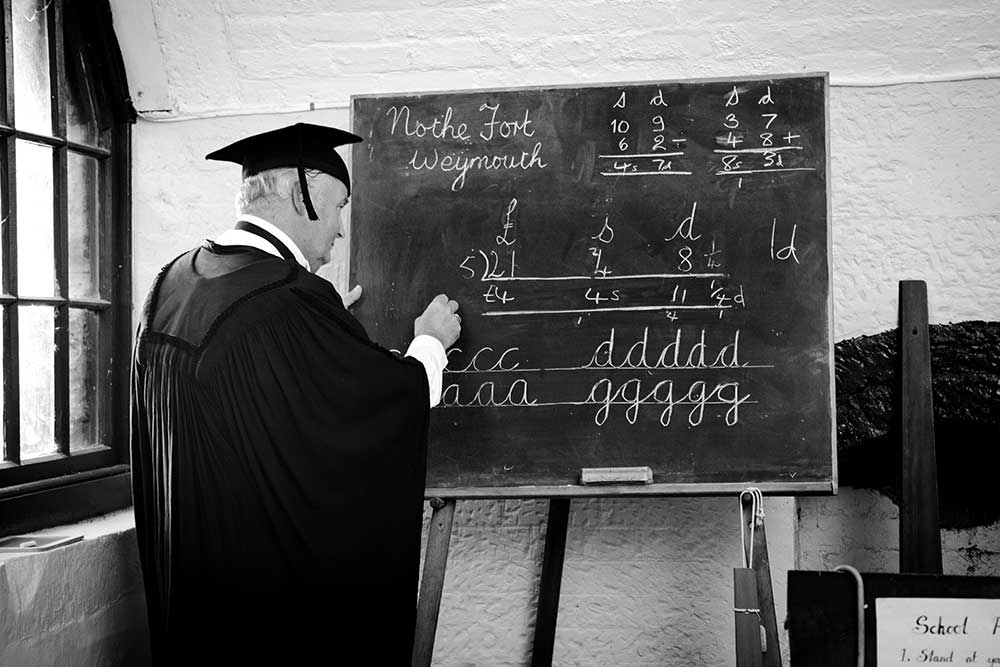 Nothe Fort
Weymouth
s d
10 9
6 2 -
4s 7d
s d
3 7
4 8 +
8s 3d
1
£ s d
5)21 4 8 1/4
£4 4s 11 1/4 d
1 4 1
1d
ccc ddddd
aaa ggggg
School
1. Stand at